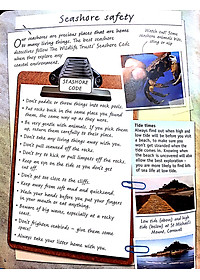 Seashore safety
Our seashores are precious places that are home
to so many living things. The best seashore
detectives follow The Wildlife Trusts' Seashore Code
when they explore any
coastal environment.
Watch out! Some
seashore animals bite,
sting or nip
SEASHORE
CODE
• Don't paddle or throw things into rock pools.
• Put rocks back in the same place you found
them, the same way up as they were.
• Be very gentle with animals. If you pick them
up, return them carefully to their place.
• Don't take any living things away with you.
• Don't pull seaweed off the rocks.
• Don't try to kick or pull limpets off the rocks.
• Keep an eye on the tide so you don't get
cut off.
• Don't get too close to the cliffs.
• Keep away from soft mud and quicksand.
• Wash your hands before you put your fingers
in your mouth or eat anything.
• Beware of big waves, especially at a rocky
coast.
• Don't frighten seabirds – give them some
space!
• Always take your litter home with you.
Tide times
Always find out when high and
low tide will be before you visit
a beach, to make sure you
won't get stranded when the
tide comes in. Knowing when
the beach is uncovered will also
allow the best exploration –
you are more likely to find bits
of sea life at low tide.
Low tide (above) and high
tide (below) at St Michael's
Mount, Cornwall